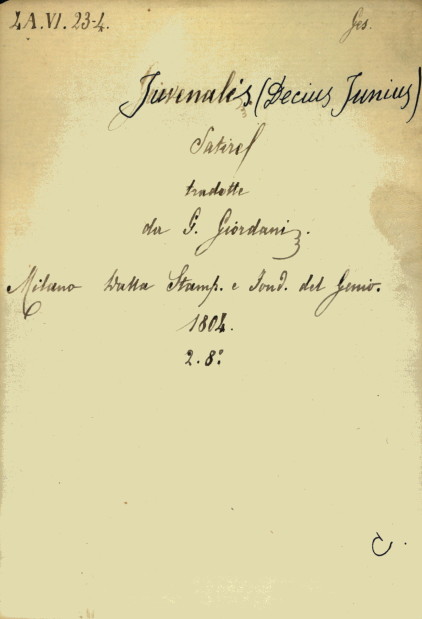 ZA.VI.23-4. Ges.
Juvenalis (Decius Junius)
Satire
tradotte
da G. Giordani.
Milano Dalla Stamp. e Fond. del Genio.
1804.
2. 8º
C.